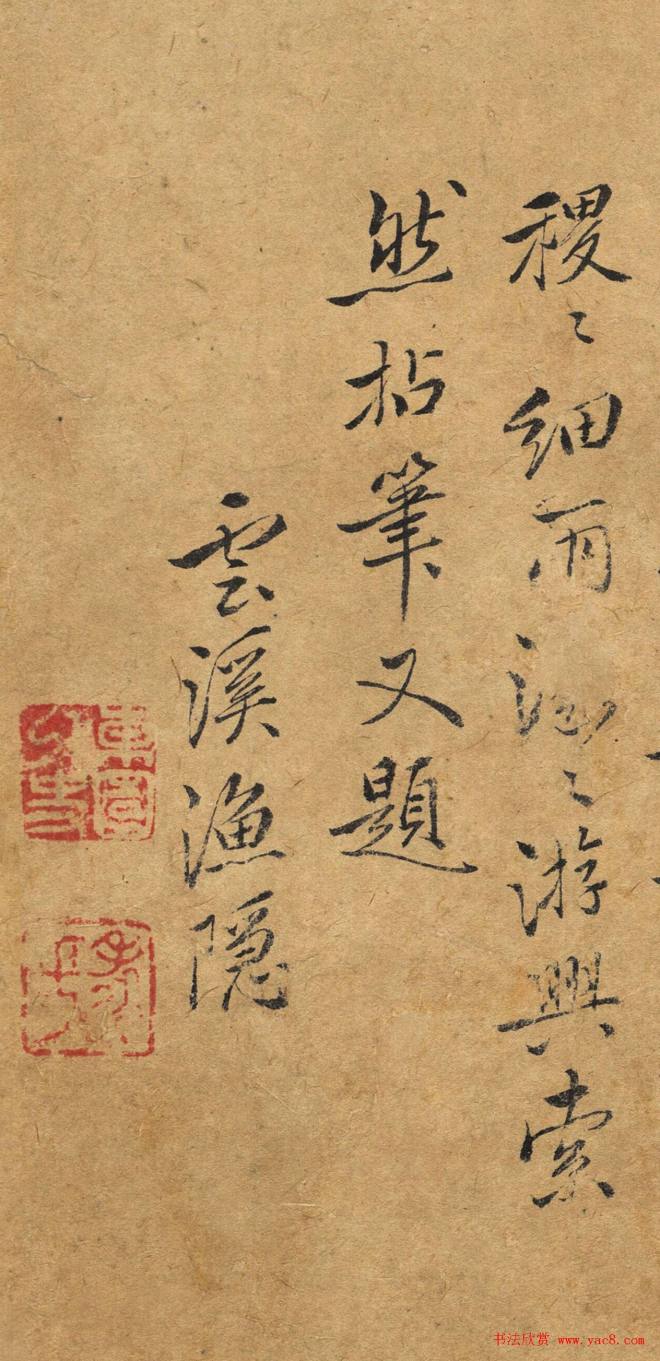 稷〻細雨洒〻游興索
然拈筆又題
雲溪漁隱
书法欣赏 www.yac8.com